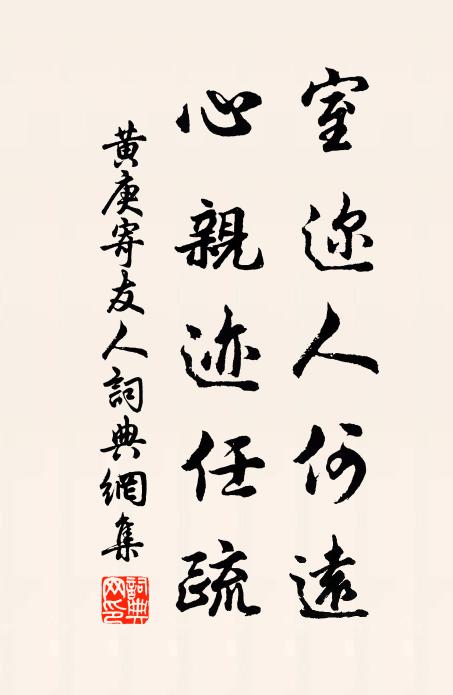 室迩人何遠
心親迹任疏
黄庚寄友人詞典網集
詞典网印